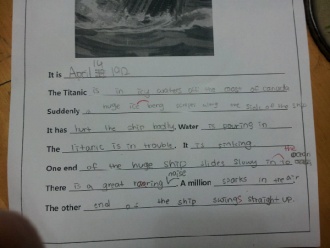 14
It is April 1912
The Titanic is in icy waters off the coast of canada
Suddenly a huge along the side of the ship
It has hurt the ship badly. Water is pouring in
The titanic is in trouble. It is sinking
the
One end of the huge ship slides slowly in to ocean
noise
There is a great roaring A million sharks in the air
The other end of the ship swings straight up.